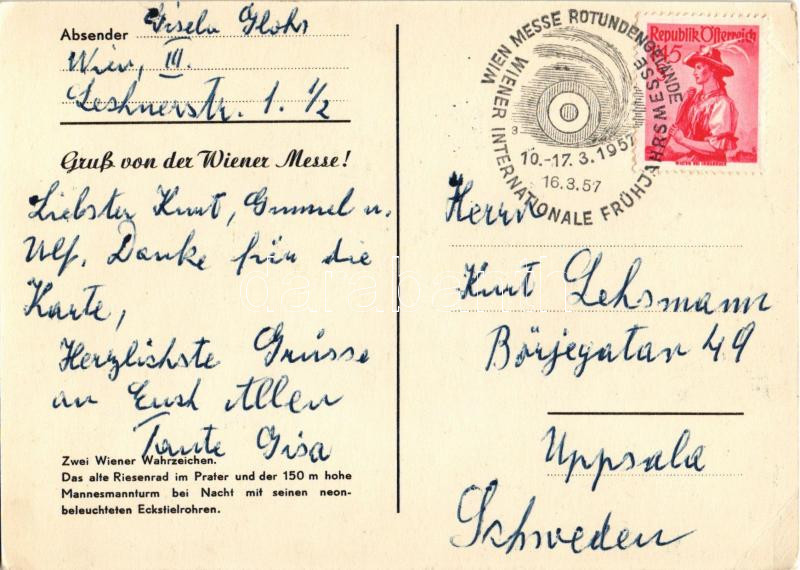 Absender Gisela Glohs
Wien, III.
Leshnerstr. 1. 1/2
Gruß von der Wiener Messe!
Liebster Kurt, Gummel u.
Ulf. Danke für die
Karte,
Herzlichste Grüsse
an Euch Allen
Tante Gisa
Zwei Wiener Wahrzeichen.
Das alte Riesenrad im Prater und der 150 m hohe
Mannesmannturm bei Nacht mit seinen neon-
beleuchteten Eckstielrohren.
WIEN MESSE ROTUNDENGELÄNDE
WIENER INTERNATIONALE FRÜHJAHRSMESSE
3
10.-17.3.1957
16.3.57
Republik Österreich
1.45
Herrn
Kurt Lehsmann
Börjegatan 49
Uppsala
Schweden
darabanth